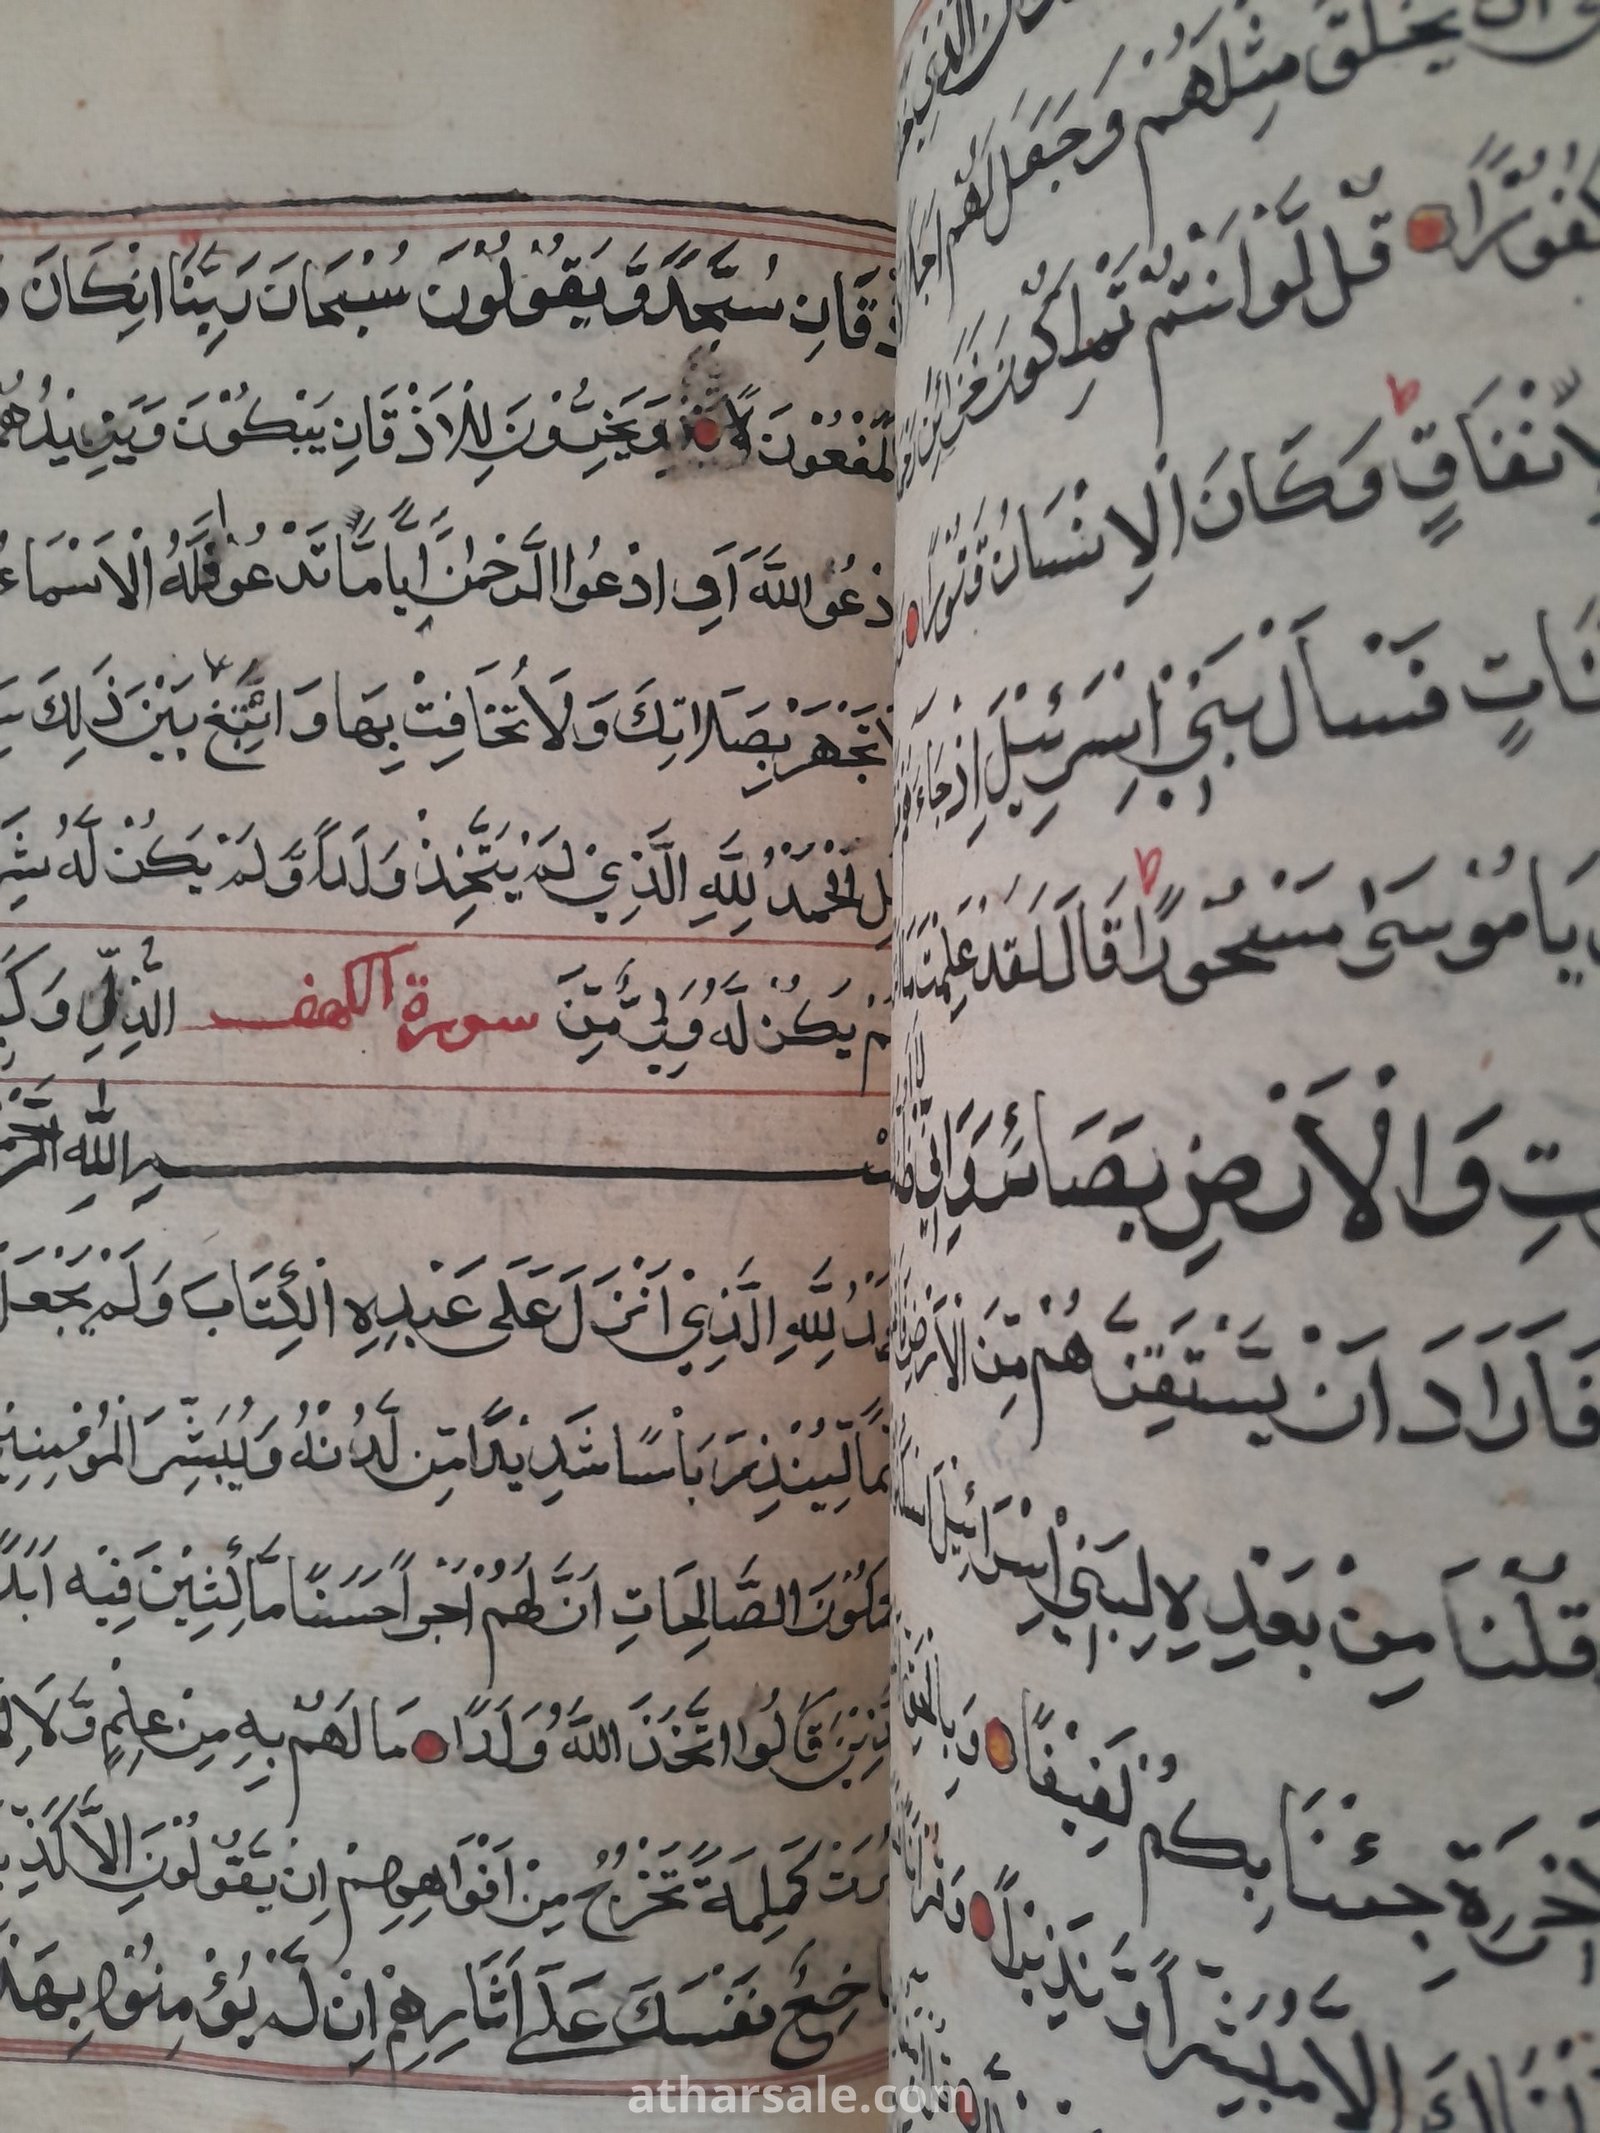 أن يخلق مثلهم وجعل لهم أجلا
كفورا قل لو أنتم تملكون خزائن
الانفاق وكان الانسان قتورا
نات فسأل بني إسرئيل إذ جاءهم
يا موسى مسحورا قال لقد علمت ما
ت والأرض بصائر وإني
فأراد أن يستفزهم من الأرض
قلنا من بعده لبني إسرائيل
الآخرة جئنا بكم لفيفا وبالحق
إلا مبشرا ونذيرا
ذقان سجدا ويقولون سبحان ربنا ان كان
لمفعولا ويخرون للاذقان يبكون ويزيدهم
دعوا الله أو ادعوا الرحمن أياما تدعوا فله الأسماء
تجهر بصلاتك ولا تخافت بها وابتغ بين ذلك
الحمد لله الذي لم يتخذ ولدا ولم يكن له
لم يكن له ولي من سورة الكهف الذل وكبره
بسم الله الرحمن
الحمد لله الذي أنزل على عبده الكتاب ولم يجعل
قيما لينذر بأسا شديدا من لدنه ويبشر المؤمنين
يعملون الصالحات أن لهم أجرا حسنا ماكثين فيه أبدا
الذين قالوا اتخذ الله ولدا ما لهم به من علم ولا
كبرت كلمة تخرج من أفواههم إن يقولون إلا كذبا
باخع نفسك على آثارهم إن لم يؤمنوا بهذا
atharsale.com